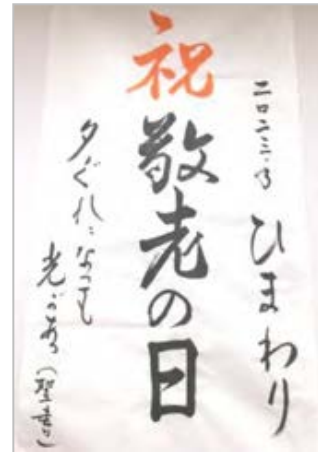 二〇二三
ひまわり
祝
敬老の日
夕ぐれになっても
光がある
(聖書)